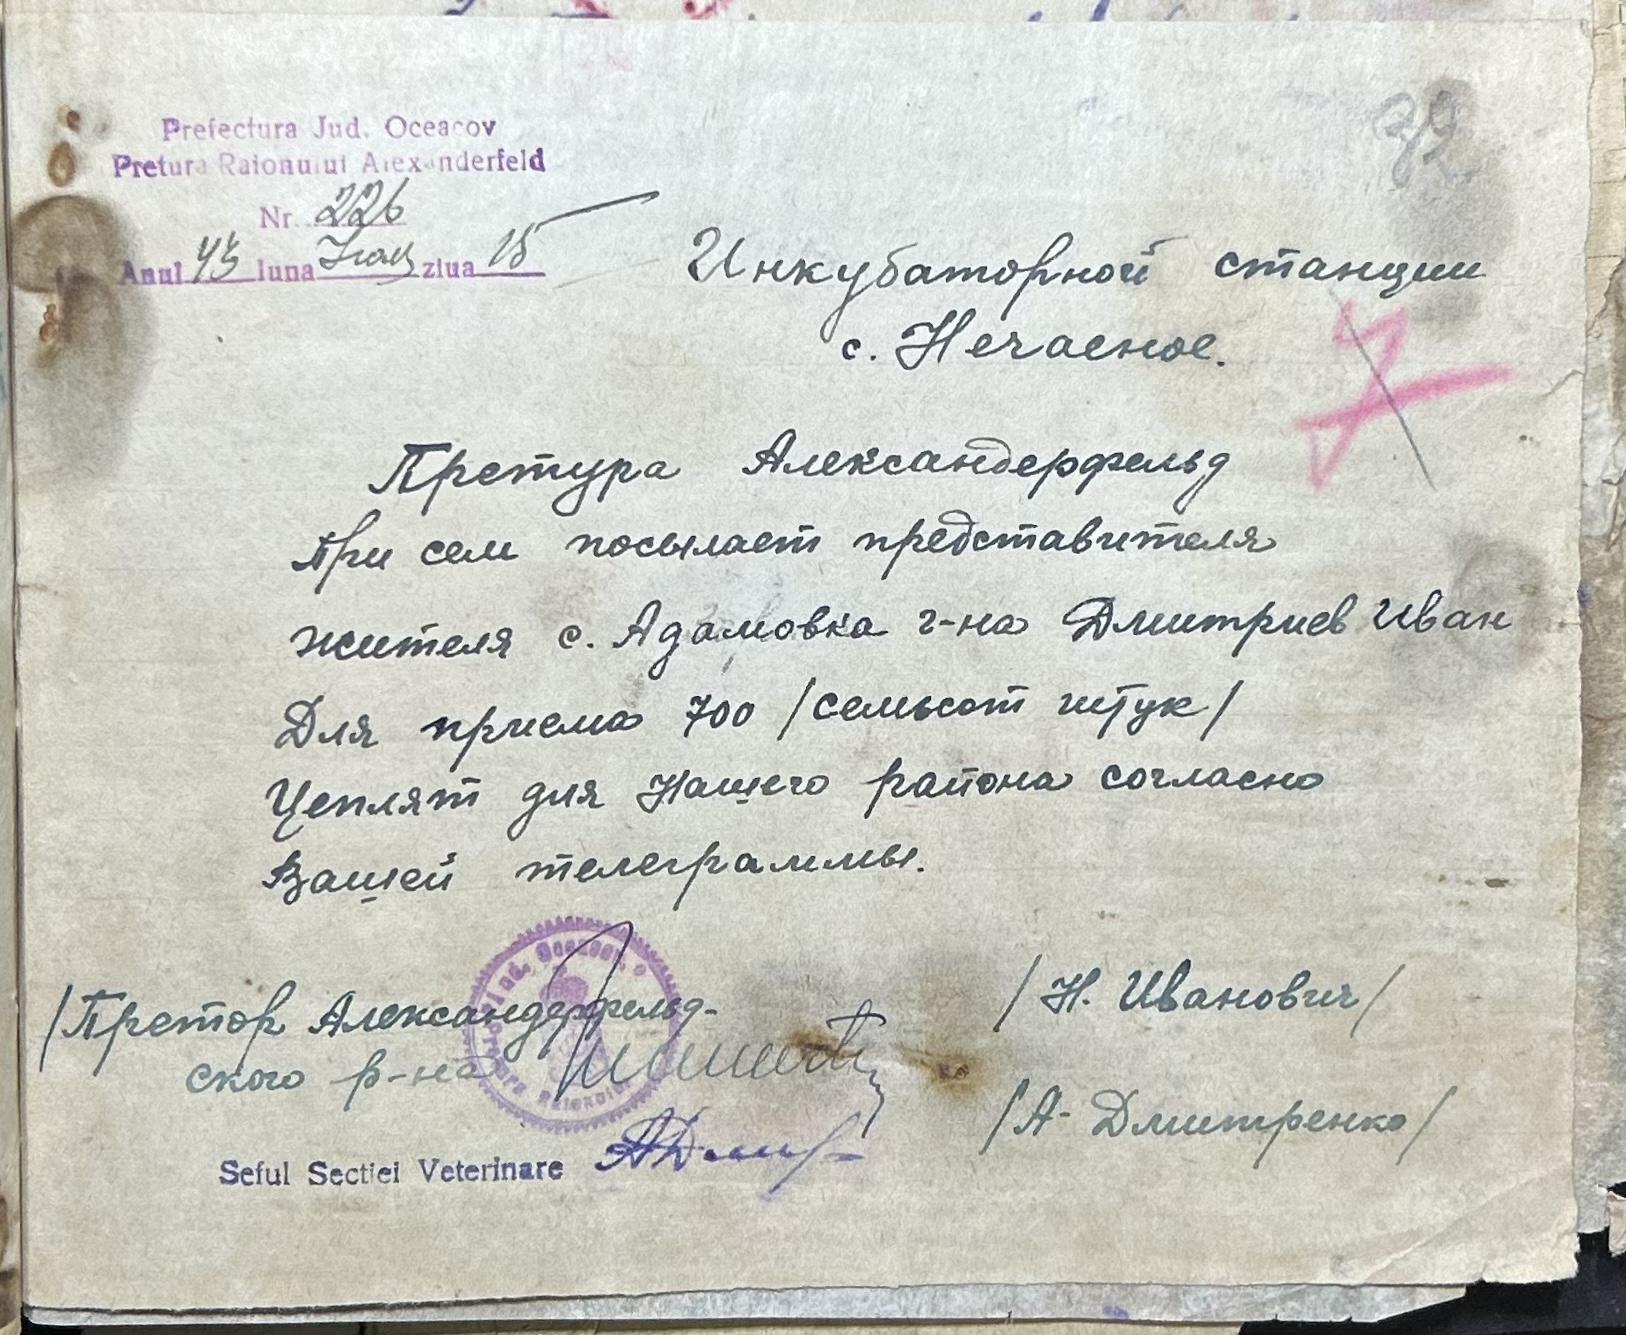 Prefectura Jud. Oceacov
Pretura Raionului Alexanderfeld
Nr. 226
Anul 43 luna ziua 15
Инкубаторной станции
с. Нечаеное.
Претура Александерфельд
при сем посылает представителя
жителя с. Адамовка г-на Дмитриев Иван
Для приема 700 /семьсот штук/
Цеплят для Нашего района согласно
Вашей телеграммы.
/Претор Александерфельд-
ского р-на
/Н. Иванович/
/А. Дмитренко/
Seful Sectiei Veterinare